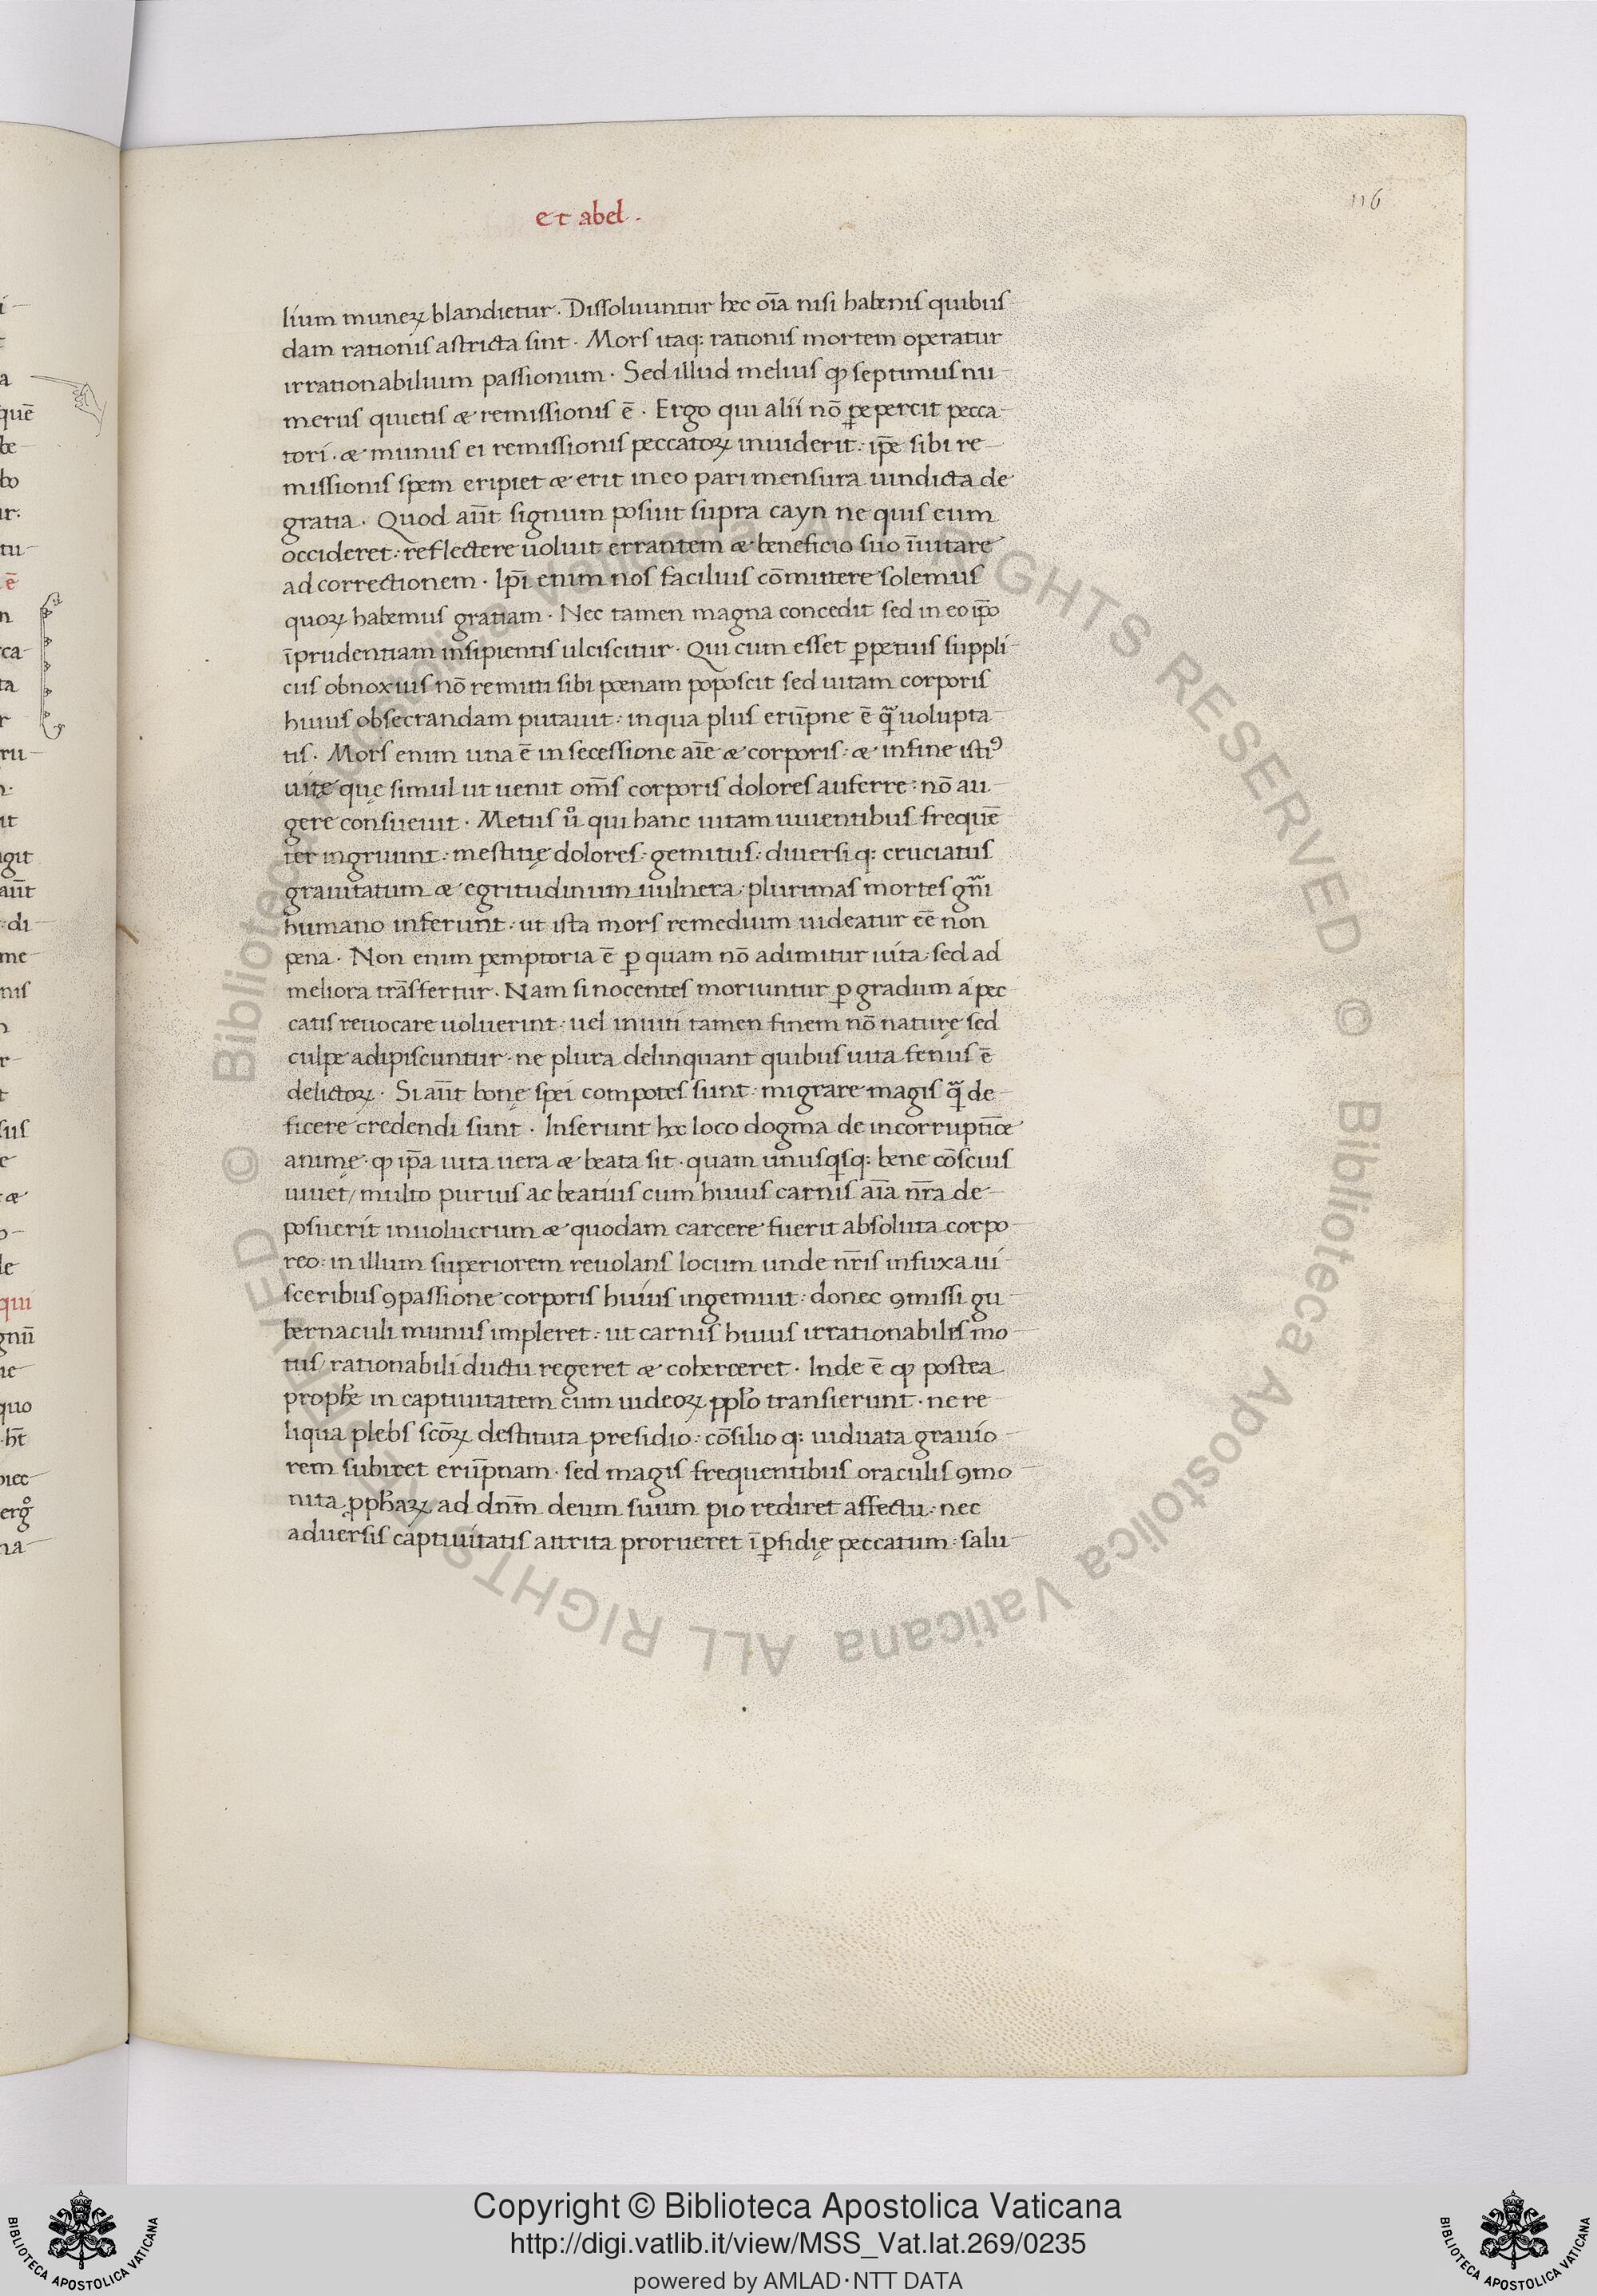 et abel .
116
lium munerꝝ blandietur . Dissoluuntur hec oı̄a nisi habenis quibus
dam rationis astricta sint . Mors itaq: rationis mortem operatur
irrationabilium passionum . Sed illud melius ꝙ septimus nu-
merus quietis & remissionis ē . Ergo qui alii nō pepercit pecca-
tori . & munus ei remissionis peccatoꝝ inuiderit : ip̄e sibi re-
missionis spem eripiet & erit in eo pari mensura uindicta de-
gratia . Quod aūt signum posuit supra cayn ne quis eum
occideret : reflectere uoluit errantem & beneficio suo īuitare
ad correctionem . Ip̄i enim nos facilius cōmittere solemus
quoꝝ habemus gratiam . Nec tamen magna concedit sed in eo ip̄o
īprudentiam insipientis ulciscitur . Qui cum esset ꝑpetuis suppli-
ciis obnoxius nō remitti sibi pœnam poposcit sed uitam corporis
huius obsecrandam putauit : in qua plus erūpne ē q̄ uolupta-
tis . Mors enim una ē in secessione aīe & corporis : & in fine istiꝰ
uitę quę simul ut uenit om̄s corporis dolores auferre : nō au-
gere consueuit . Metus ů qui hanc uitam uiuentibus frequē
ter ingruunt : mestitię dolores : gemitus : diuersi q: cruciatus
grauitatum & egritudinum uulnera : plurimas mortes gn̄i
humano inferunt : ut ista mors remedium uideatur eē non
pena . Non enim ꝑemptoria ē ꝑ quam nō adimitur uita : sed ad
meliora trāsfertur . Nam si nocentes moriuntur ꝑ gradum a pec
catis reuocare uoluerint : uel inuiti tamen finem nō naturę sed
culpe adipiscuntur : ne plura delinquant quibus uita fenus ē
delictoꝝ . Si aūt bonę spei compotes sunt : migrare magis q̄ de-
ficere credendi sunt . Inserunt hoc loco dogma de incorruptiōe
animę . ꝙ ip̄a uita uera & beata sit . quam unusq̄sq: bene cōscius
uiuet / multo purius ac beatius cum huius carnis aīa nr̄a de-
posuerit inuolucrum & quodam carcere fuerit absoluta corpo-
reo : in illum superiorem reuolans locum unde nr̄is infuxa ui-
sceribus ꝯpassione corporis huius ingemuit : donec ꝯmissi gu-
bernaculi munus impleret : ut carnis huius irrationabiles mo-
tus / rationabili ductu regeret & coherceret . Inde ē ꝙ postea
proph̄e in captiuitatem cum iudeoꝝ ppl̄o transierunt . ne re-
liqua plebs scōꝝ destituta presidio : cōsilio q: uiduata grauio-
rem subiret erūpnam . sed magis frequentibus oraculis ꝯmo-
nita ꝓph̄aꝝ ad dn̄m deum suum pio rediret affectu : nec
aduersis captiuitatis attrita prorueret ī ꝑfidię peccatum : salu-
Copyright © Biblioteca Apostolica Vaticana
http://digi.vatlib.it/view/MSS_Vat.lat.269/0235
powered by AMLAD·NTT DATA